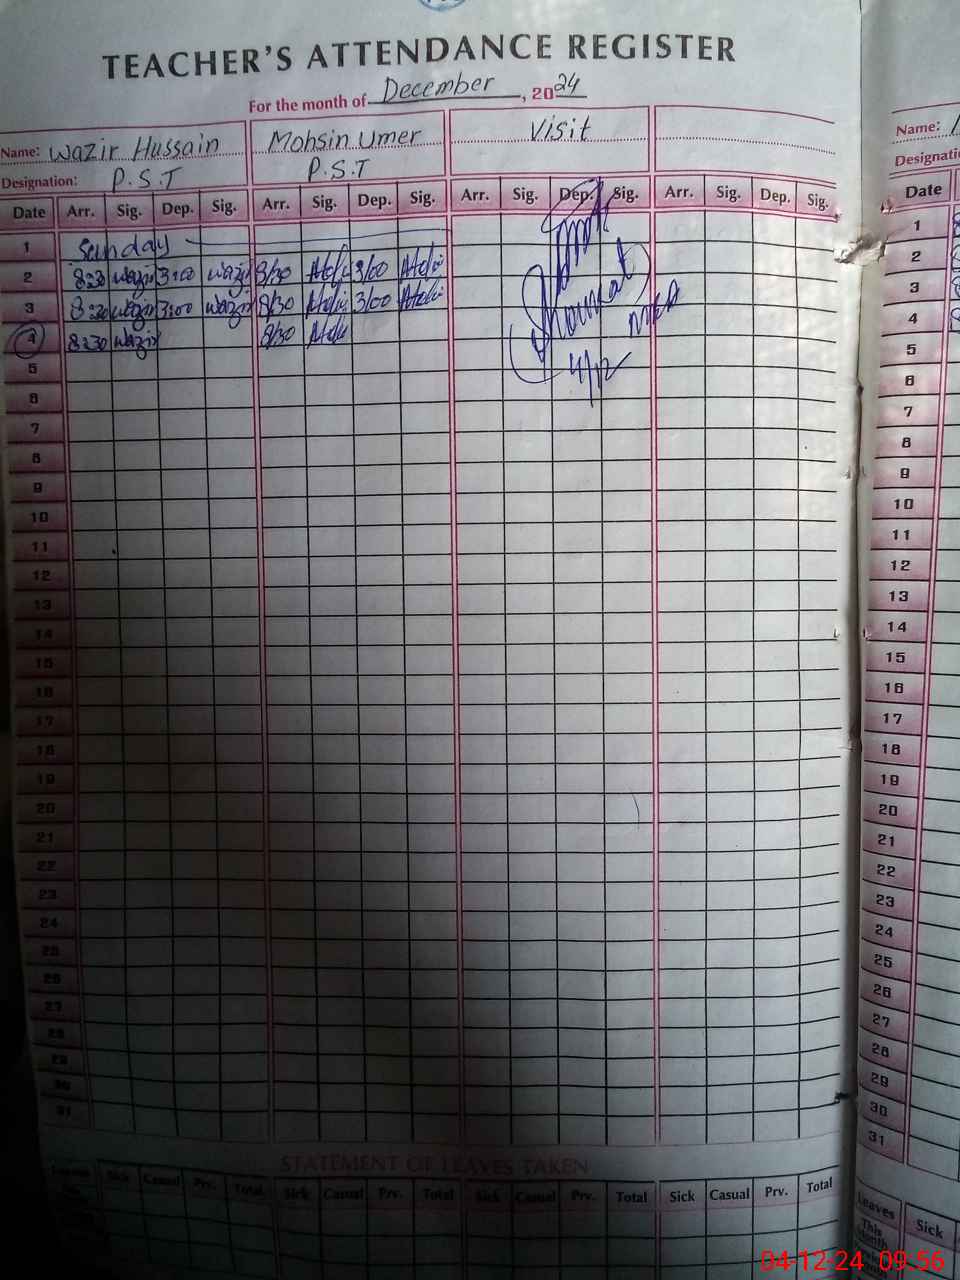 TEACHER'S ATTENDANCE REGISTER
For the month of December, 2024
Name: Wazir Hussain Mohsin Umer Visit
Designation: P.S.T P.S.T
Date Arr. Sig. Dep. Sig. Arr. Sig. Dep. Sig. Arr. Sig. Dep. Sig. Arr. Sig. Dep. Sig.
1 Sunday
2 8:30 Wazir 3:00 Wazir 8/30 3/00
3 8:30 Wazir 3:00 Wazir 8/30 3/00
4 8:30 Wazir 8/30
Shoukat MEA
4/12
5
6
7
8
9
10
11
12
13
14
15
16
17
18
19
20
21
22
23
24
25
26
27
28
29
30
31
STATEMENT OF LEAVES TAKEN
Leaves Sick Casual Prv. Total Sick Casual Prv. Total Sick Casual Prv. Total Sick Casual Prv. Total
Name:
Date
1
2
3
4
5
6
7
8
9
10
11
12
13
14
15
16
17
18
19
20
21
22
23
24
25
26
27
28
29
30
31
Leaves Sick
This
Month
04-12-24 09:56